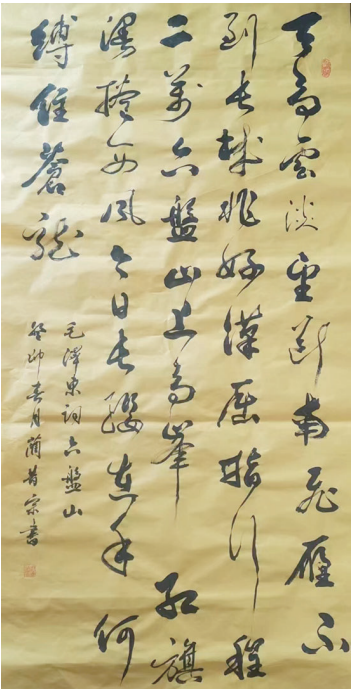 天高雲淡望斷南飛雁不
到長城非好漢屈指行程
二萬六盤山上高峰紅旗
漫捲西風今日長纓在手何
縛住蒼龍
毛澤東詞六盤山
癸卯春月宗書